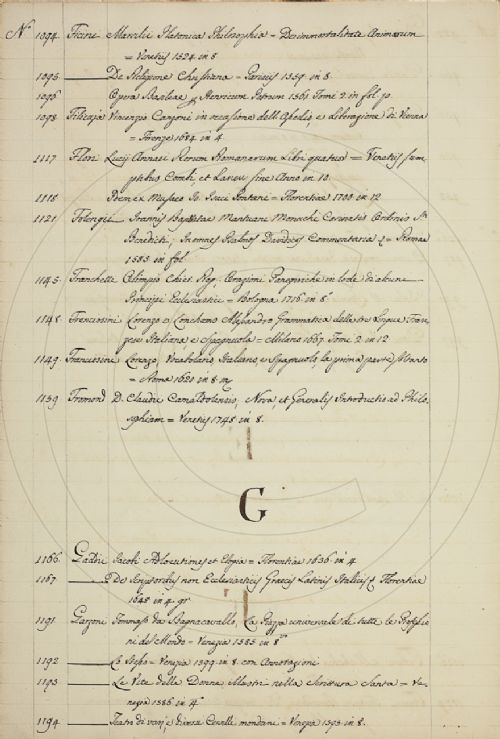 N.º 1094. Ficini Marsilii Platonica Philosophia = De immortalitate Animarum
= Venetiis 1524 in 8
1095 —— De Religione Christiana = Parisiis 1559 in 8.
1096 Opera Basileae Henricum Petrum 1561 Tomi 2. in fol.
1098 Filicaja Vincenzio Canzoni in occasione dell'Assedio, e Liberazione di Vienna
= Firenze 1684 in 4
1117 Flori Lucij Annaei Rerum Romanarum Libri quatuor = Venetiis sum
ptibus Combi, et Lanou sine Anno in 10.
1118 Idem ex Museo Jo. Isaci Pontani = Florentiae 1700 in 12
1121 Folengii Joannis Baptistae Mantuani Monachi Cassinatis Ordinis S.
Benedicti; In omnes Psalmos Davidicos Commentaria = Romae
1585 in fol.
1145 Franchetti Olimpio Chier. Reg. Orazioni Panegiriche in lode di alcuni
Principi Ecclesiastici = Bologna 1716 in 8
1148 Franciosini Lorenzo, e Alessandro Grammatica delle tre Lingue Fran
zese Italiana e Spagnuola = Milano 1667 Tomi 2 in 12
1149 Franciosini Lorenzo, Vocabolario Italiano, e Spagnuolo, la prima parte soltanto
= Roma 1620 in 8.
1159 Fromond D. Claudii Camaldolensis, Nova, et Generalis Introductio ad Philo
sophiam = Venetiis 1748 in 8.
G
1166. Gaddi Jacobi Adlocutiones et Elogia = Florentiae 1636 in 4
1167 —— De Scriptoribus non Ecclesiasticis Graecis Latinis Italicis Florentiae
1648 in 4.
1191 Garzoni Tommaso da Bagnacavallo, La Piazza universale di tutte le Professio
ni del Mondo = Venezia 1585 in 8
1192 —— Lo stesso = Venezia 1599 in 8. con Annotazioni
1193 —— Le Vite delle Donne Illustri nella Scrittura Santa = Ve
nezia 1586 in 4
1194 —— Teatro di varj, e diversi Cervelli mondani = Venezia 1595 in 8.